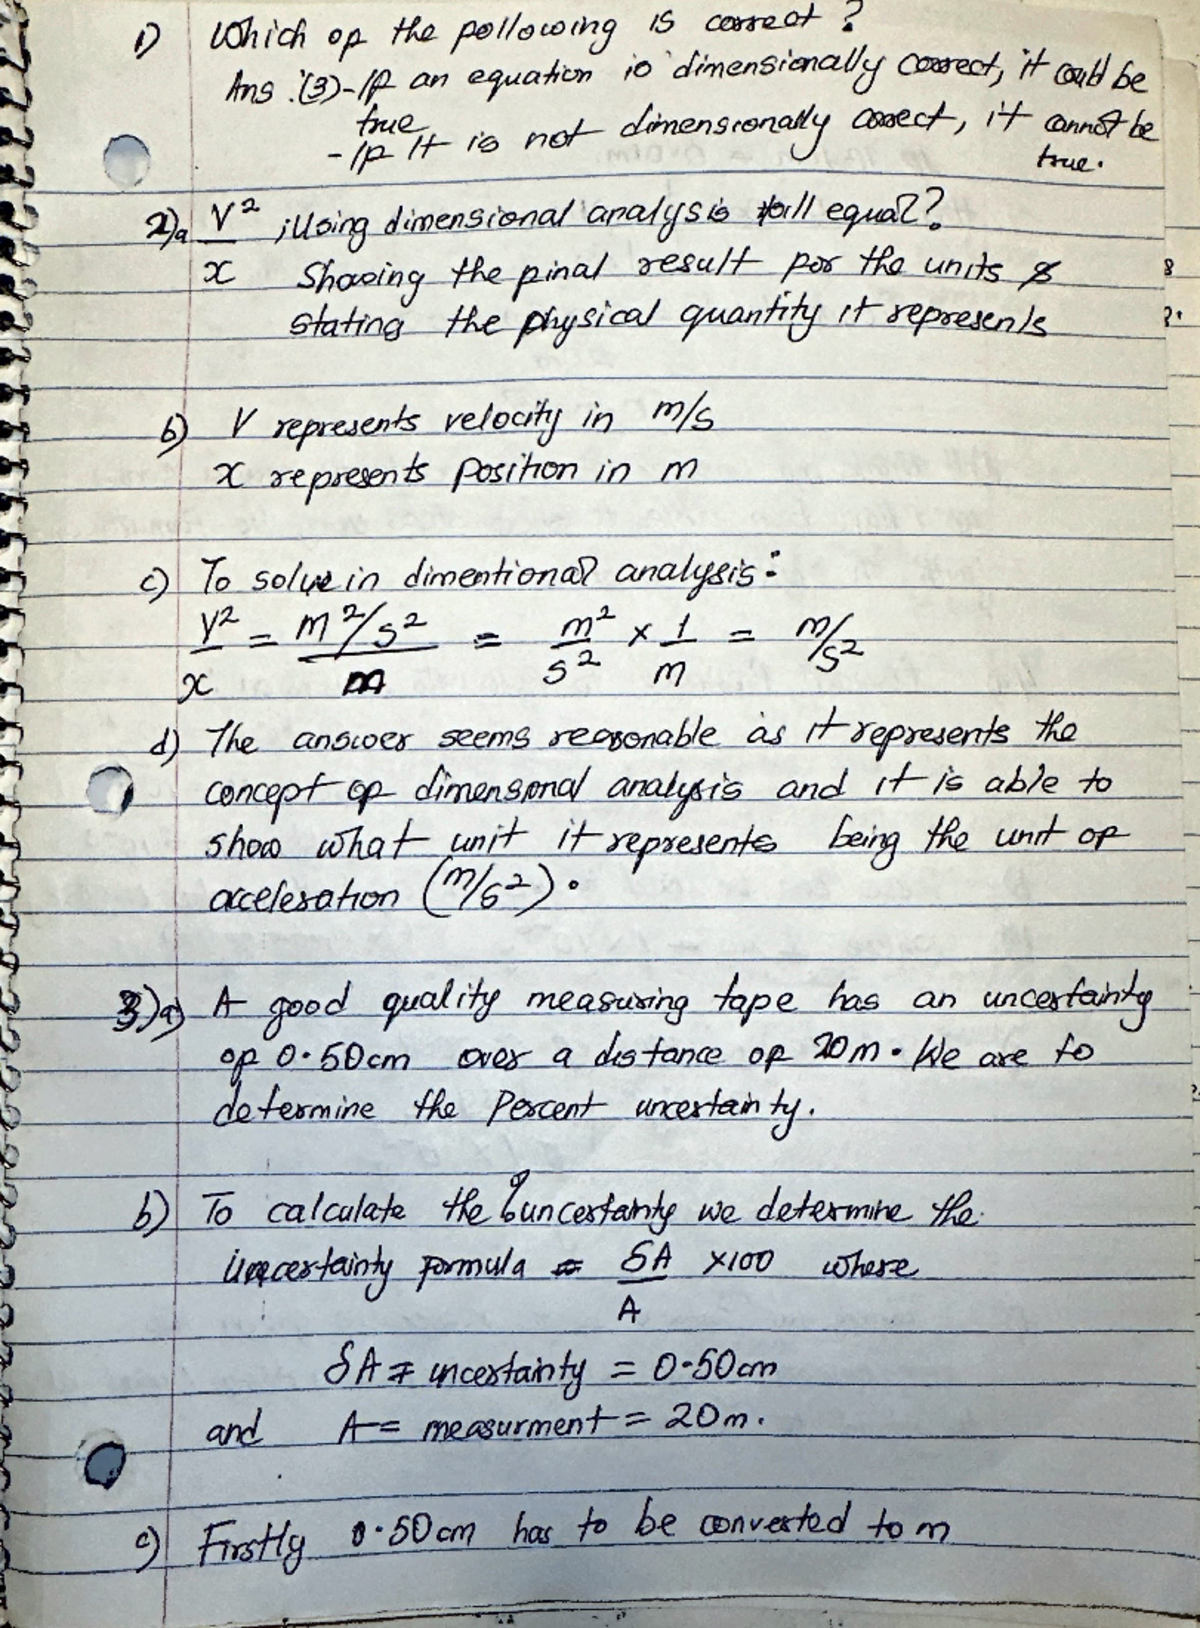 1) Which of the following is correct ?
Ans :(3)- If an equation is dimensionally correct, it could be
true
- If it is not dimensionally correct, it cannot be
true.
2)a V² ; Using dimensional analysis will equal?
x Showing the final result for the units &
stating the physical quantity it represents
b) V represents velocity in m/s
x represents position in m
c) To solve in dimentional analysis :
V²/x = m²/s² / m = m²/s² × 1/m = m/s²
d) The answer seems reasonable as it represents the
concept of dimensional analysis and it is able to
show what unit it represents being the unit of
acceleration (m/s²).
3)a) A good quality measuring tape has an uncertainty
of 0.50cm over a distance of 20m. We are to
determine the Percent uncertainty.
b) To calculate the % uncertainty we determine the
Uncertainty formula = δA/A ×100 where
δA = uncertainty = 0.50cm
and A = measurment = 20m.
c) Firstly 0.50cm has to be converted to m